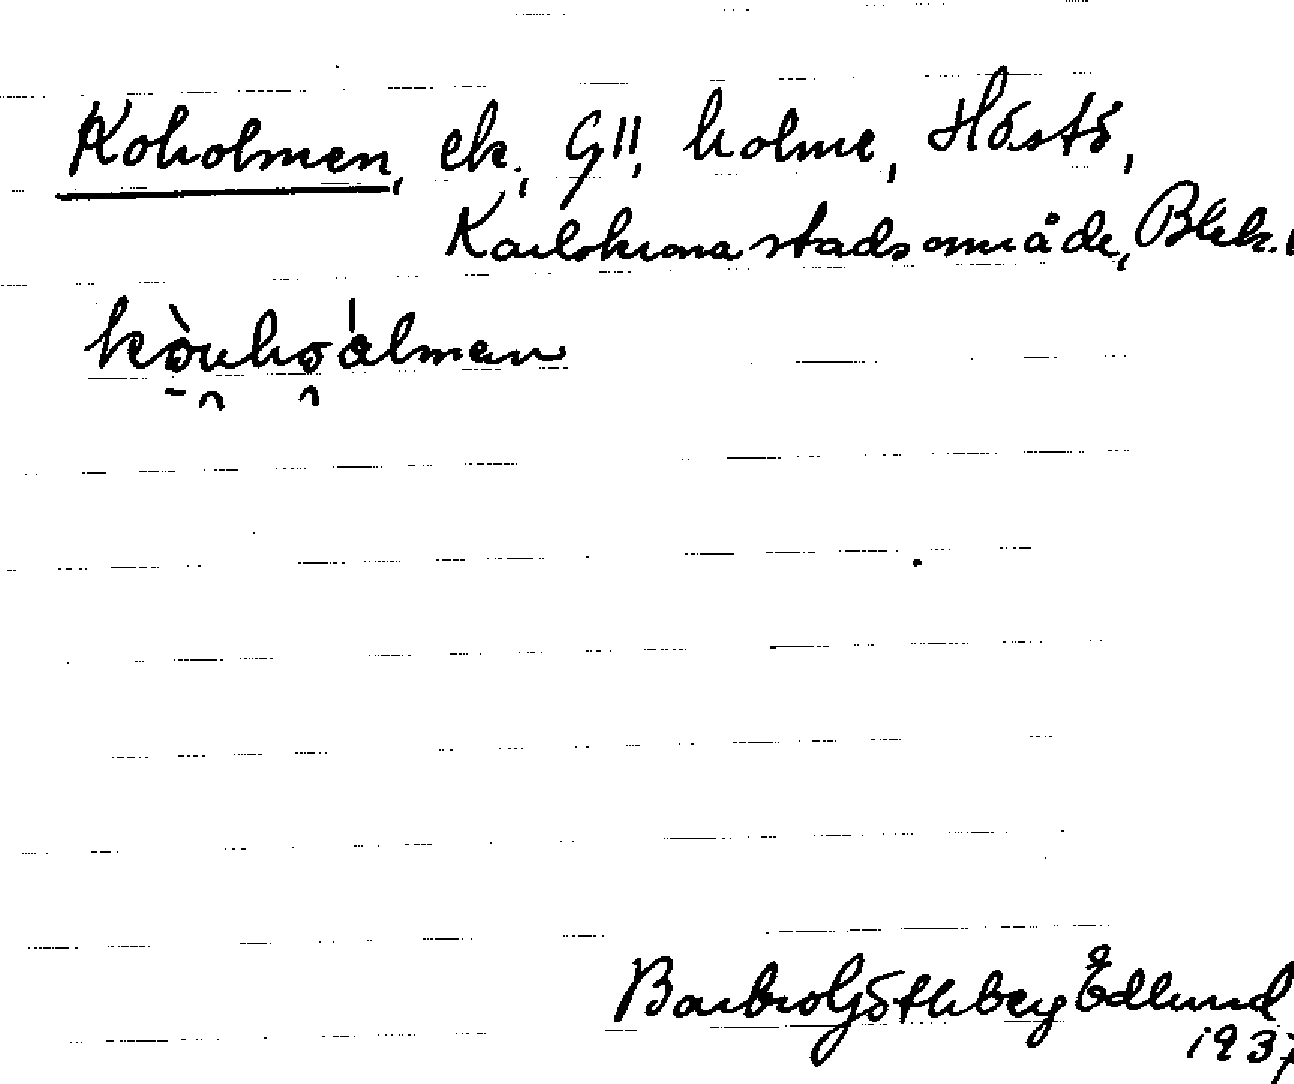 Koholmen, ek., G11, holme, Hästö,
Karlskrona stadsområde, Blek.
kòu̯ho̯álmen
Barbro Göthberg Edlund
1937